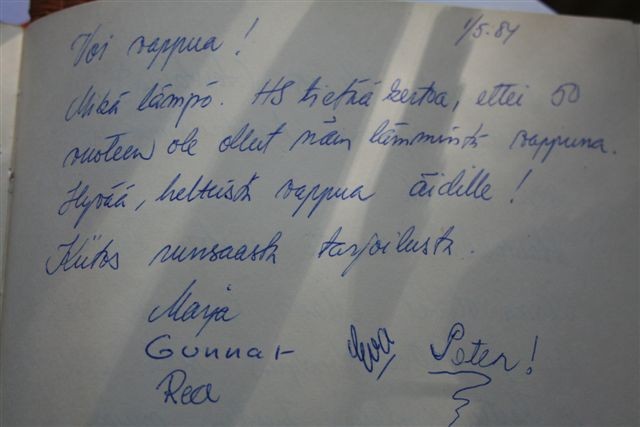 1/5.84
Voi vappua!
Mikä lämpö. HS tietää kertoa, ettei 50
vuoteen ole ollut näin lämmintä vappuna.
Hyvää, helteistä vappua äidille!
Kiitos runsaasta tarjoilusta.
Marja
Gunnar Eva Peter!
Rea